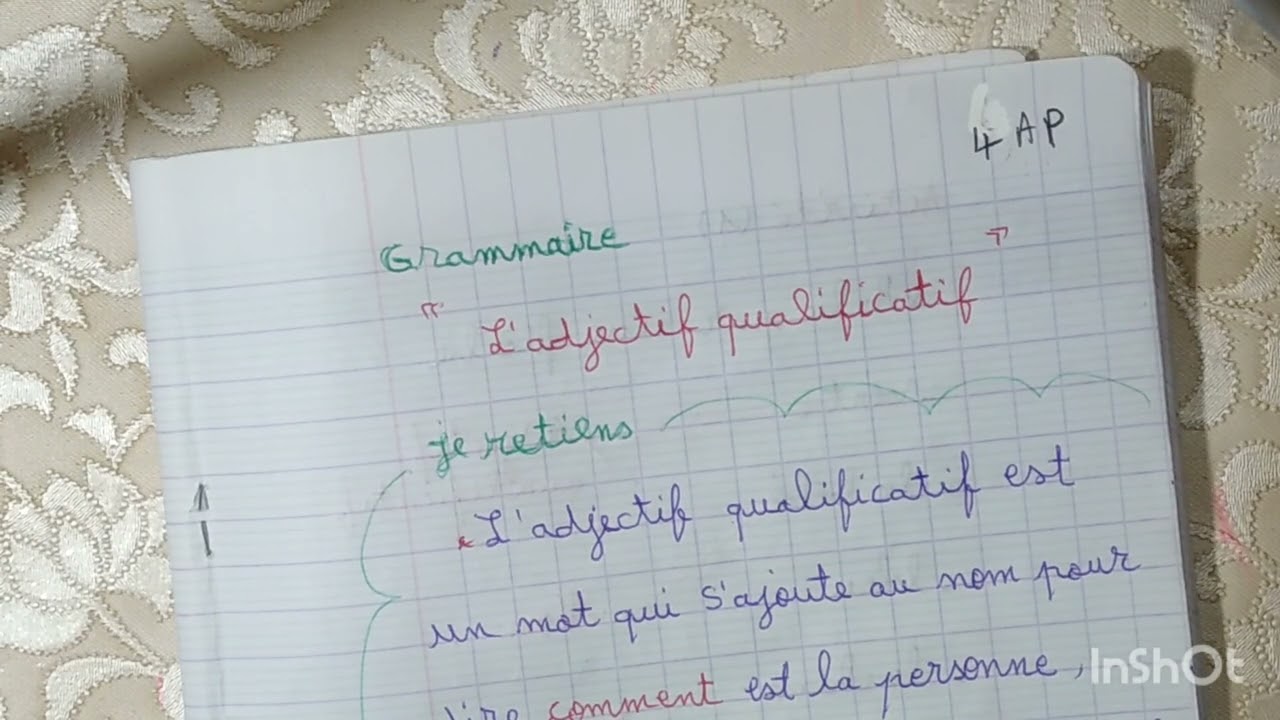 4 AP
Grammaire
« L'adjectif qualificatif »
je retiens
L'adjectif qualificatif est
un mot qui s'ajoute au nom pour
dire comment est la personne,
InShOt